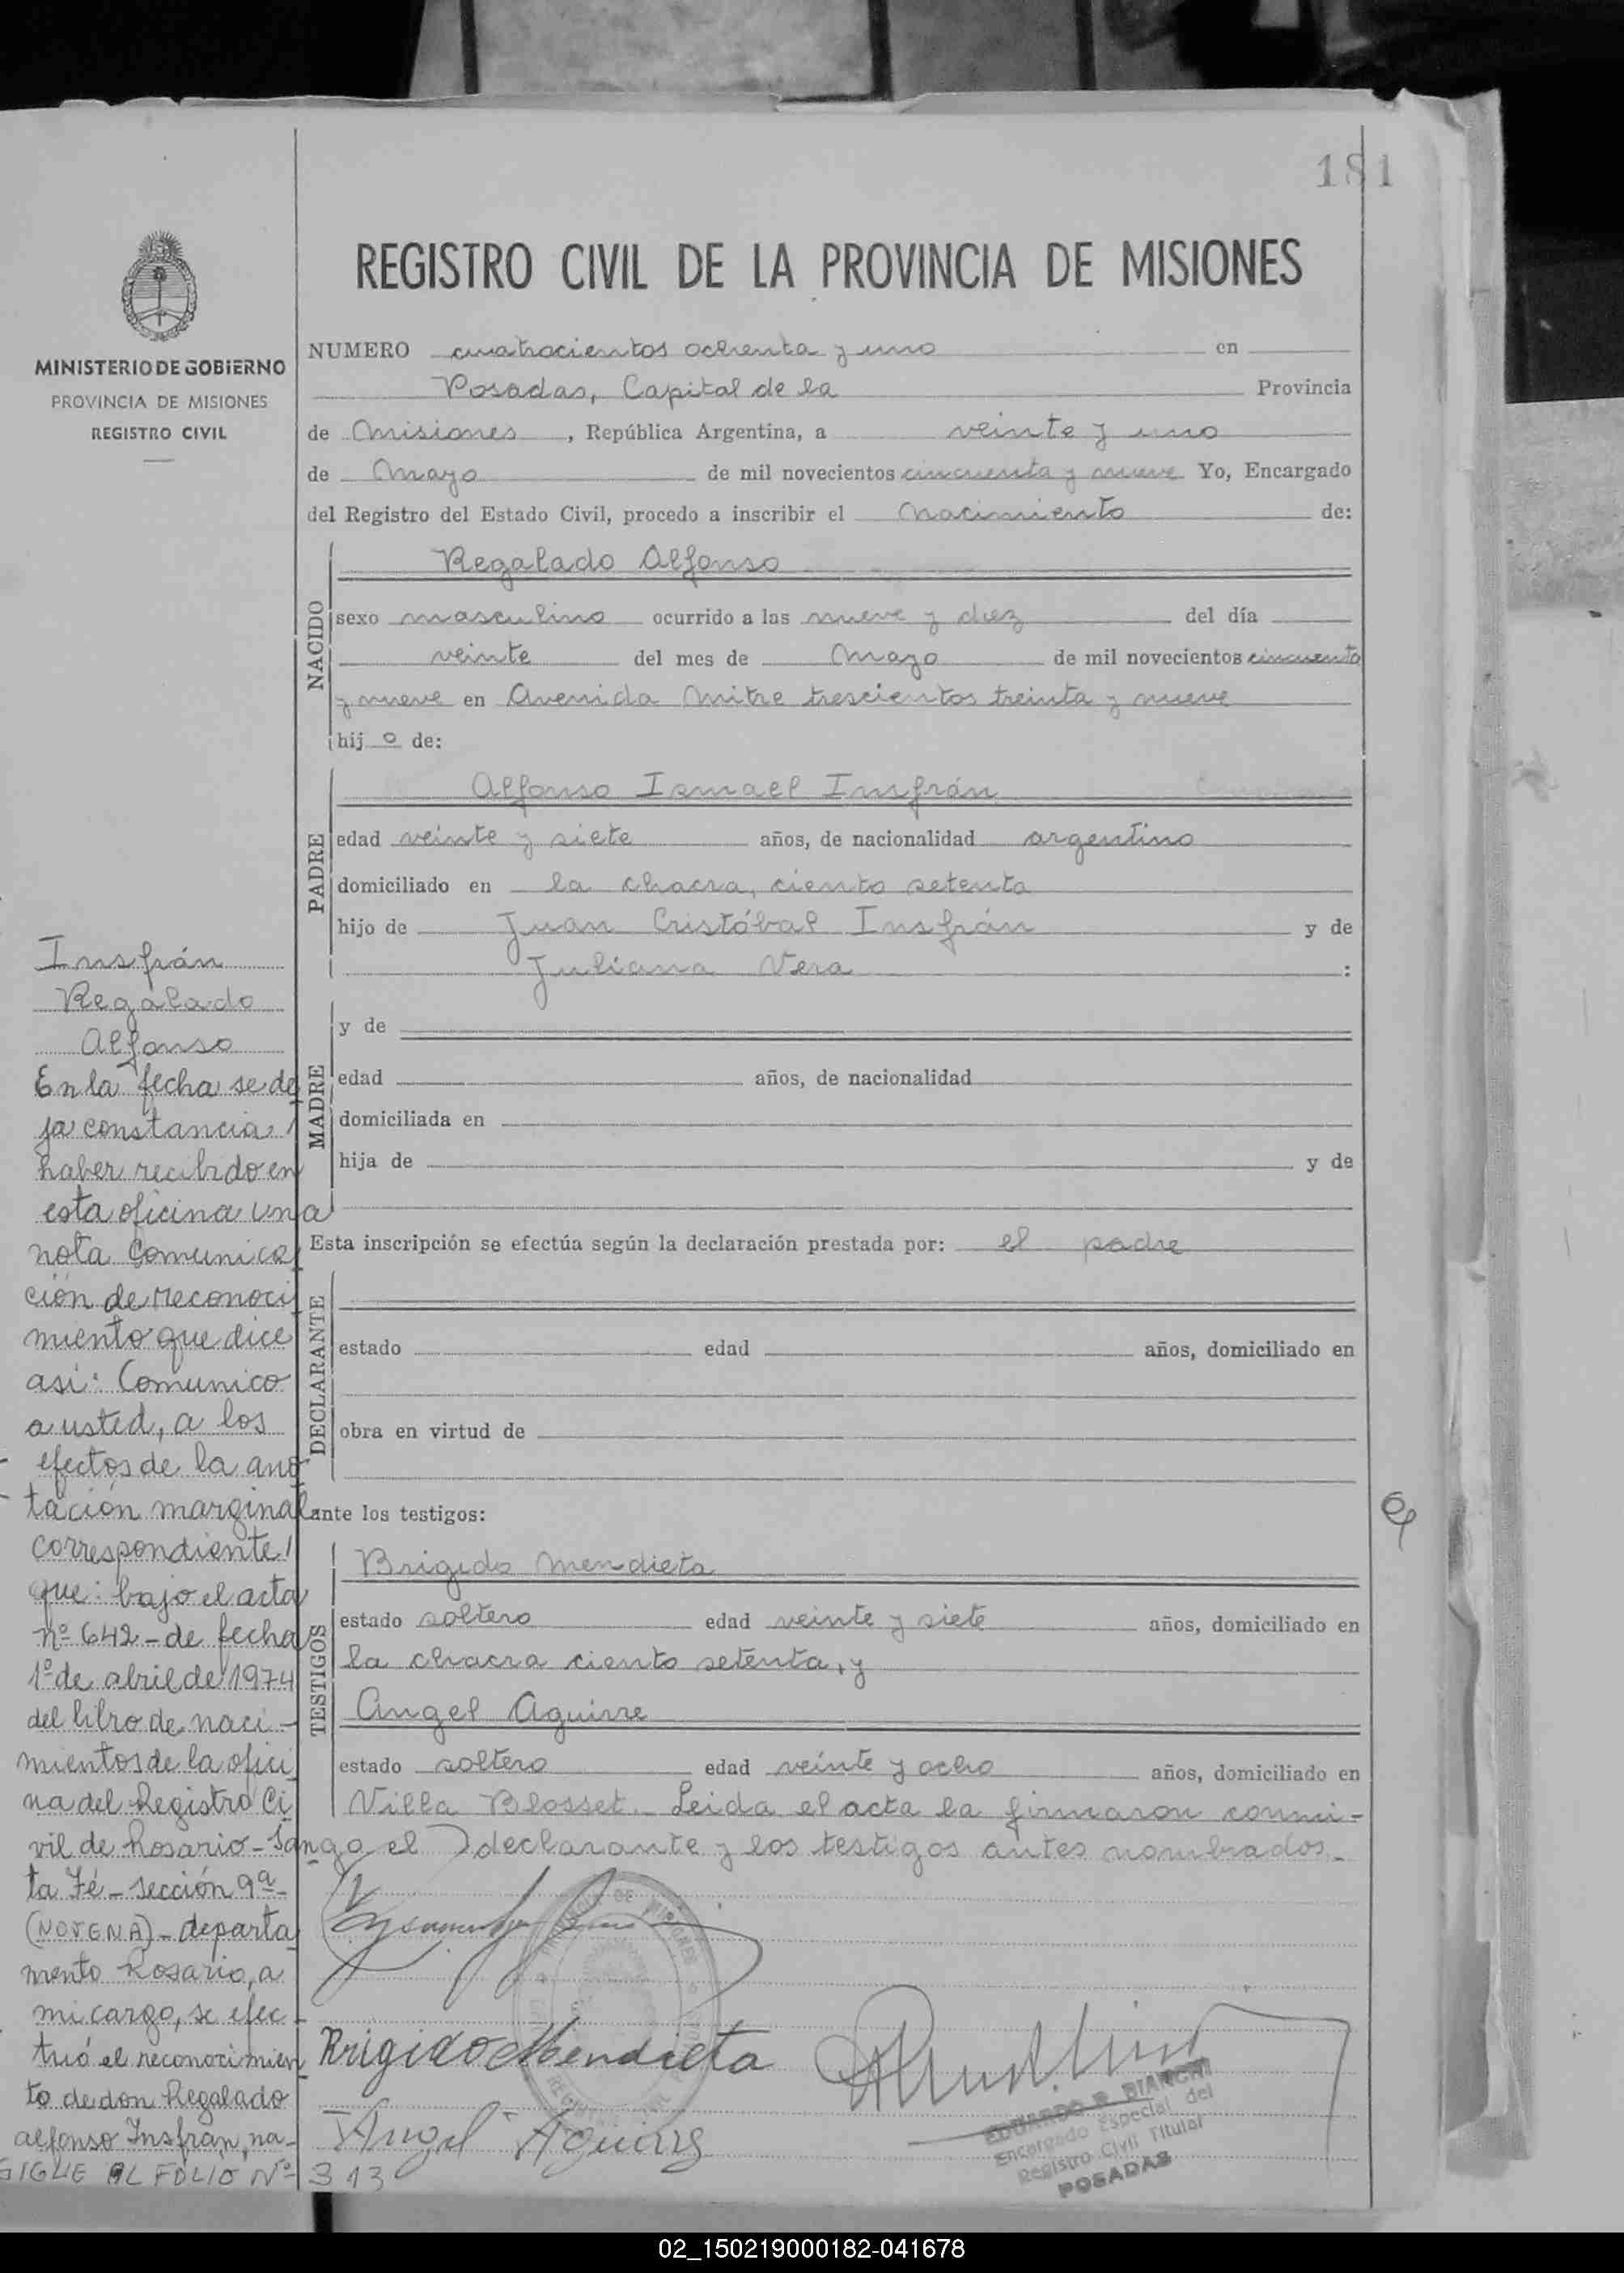 181
MINISTERIO DE GOBIERNO
PROVINCIA DE MISIONES
REGISTRO CIVIL
REGISTRO CIVIL DE LA PROVINCIA DE MISIONES
NUMERO cuatrocientos ochenta y uno en
Posadas, Capital de la Provincia
de Misiones, República Argentina, a veinte y uno
de Mayo de mil novecientos cincuenta y nueve Yo, Encargado
del Registro del Estado Civil, procedo a inscribir el Nacimiento de:
NACIDO
Regalado Alfonso
sexo masculino ocurrido a las nueve y diez del día
veinte del mes de Mayo de mil novecientos cincuenta
y nueve en Avenida Mitre trescientos treinta y nueve
hij o de:
PADRE
Alfonso Ismael Insfrán
edad veinte y siete años, de nacionalidad argentino
domiciliado en la chacra, ciento setenta
hijo de Juan Cristóbal Insfrán y de
Juliana Vera :
MADRE
y de
edad años, de nacionalidad
domiciliada en
hija de y de
Esta inscripción se efectúa según la declaración prestada por: el padre
DECLARANTE
estado edad años, domiciliado en
obra en virtud de
ante los testigos:
TESTIGOS
Brigido Mendieta
estado soltero edad veinte y siete años, domiciliado en
la chacra ciento setenta, y
Angel Aguirre
estado soltero edad veinte y ocho años, domiciliado en
Villa Blosset. Leida el acta la firmaron conmi-
go el declarante y los testigos antes nombrados.
Brigido Mendieta
Angel Aguirre
EDUARDO R. BIANCHI
Encargado Especial del
Registro Civil Titular
POSADAS
Insfrán
Regalado
Alfonso
En la fecha se de
ja constancia
haber recibido en
esta oficina una
nota Comunica
ción de reconoci
miento que dice
asi: Comunico
a usted, a los
efectos de la ano
tación marginal
correspondiente
que: bajo el acta
nº 642 - de fecha
1º de abril de 1974
del libro de naci-
mientos de la ofici
na del Registro Ci
vil de Rosario - San
ta Fé - sección 9ª -
(NOVENA) - departa
mento Rosario, a
mi cargo, se efec
tuó el reconocimien
to de don Regalado
alfonso Insfran, na-
SIGUE AL FOLIO Nº 313
02_150219000182-041678